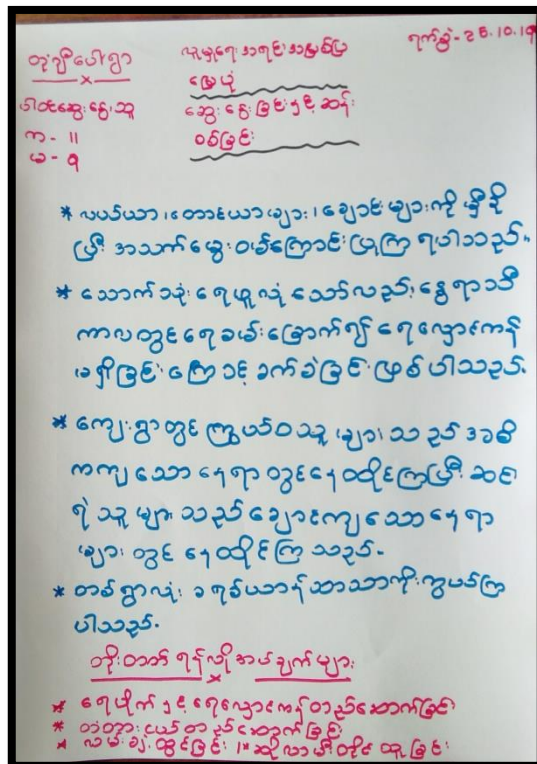 လူမှုရေးအရင်းအမြစ်ပြ
ရက်စွဲ-25.10.19
မြေပုံ
ပါဝင်ဆွေးနွေးသူ
ဆွေးနွေးခြင်းနှင့်ဆန်း
စစ်ခြင်း
က - ။
မ - ၅
* လယ်ယာ၊တောင်ယာများ၊ချောင်းများကိုမှီခို
ပြီး အသက်မွေးဝမ်းကြောင်းပြုကြ ရပါသည်။
* သောက်သုံးရေဖူလုံသော်လည်းနွေရာသီ
ကာလတွင်ရေခမ်းခြောက်၍ ရေလှောင်ကန်
မရှိခြင်းကြောင့် ခက်ခဲခြင်းဖြစ်ပါသည်.
* ကျေးရွာတွင် ကြွယ်ဝသူများသည်အဓိ
ကကျသောနေရာတွင်နေထိုင်ကြပြီး ဆင်း
ရဲသူများသည်ချောင်ကျသောနေရာ
များတွင် နေထိုင်ကြသည်.
* တစ်ရွာလုံး ခရစ်ယာန်ဘာသာကိုးကွယ်ကြ
ပါသည်.
တိုးတက်ရန်လိုအပ်ချက်များ
* ရေပိုက်နှင့်ရေလှောင်ကန်တည်ဆောက်ခြင်း
* တံတားငယ်တည်ဆောက်ခြင်း
* လမ်းချဲ့ထွင်ခြင်း ၊* ဆိုလာမီးတိုင် ထူခြင်း